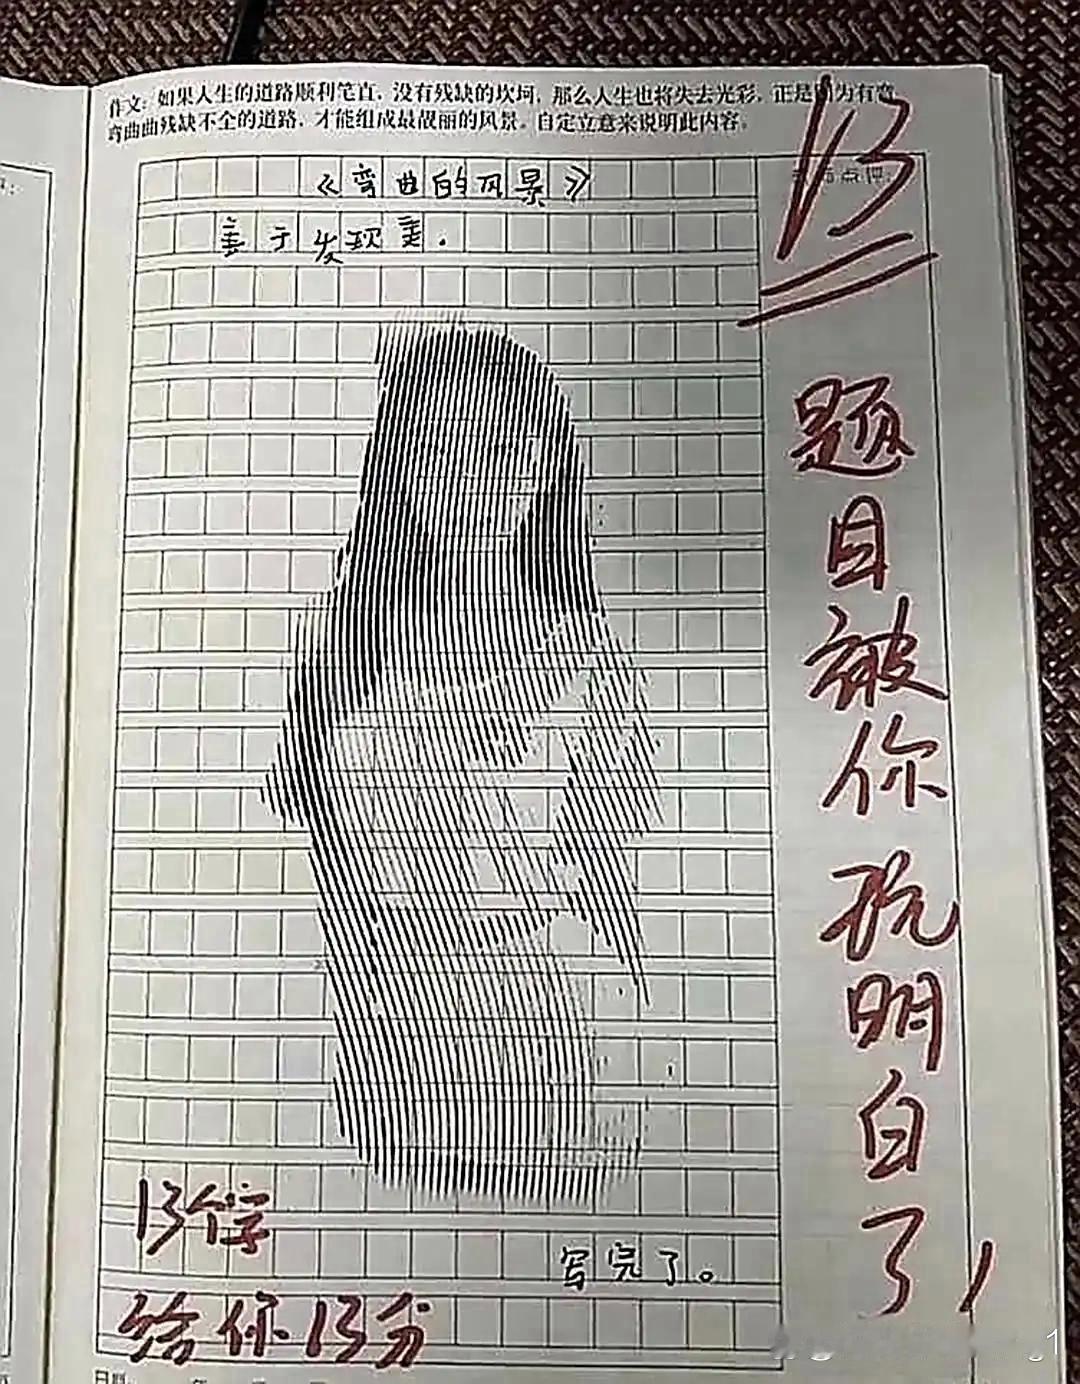 作文：如果人生的道路顺利笔直，没有残缺的坎坷，那么人生也将失去光彩，正是因为有弯
弯曲曲残缺不全的道路，才能组成最靓丽的风景。自定立意来说明此内容。
《弯曲的风景》
善于发现美.
13
师点评：
题目被你玩明白了！
13个字
写完了。
给你13分
日期